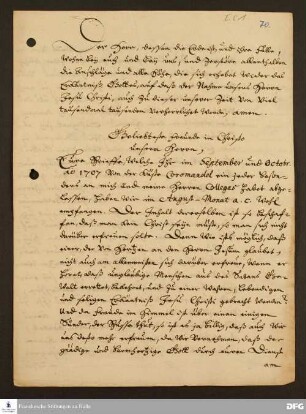 70.
Der Herr, dessen die Erde ist, und Ihre Fülle,
wohne bey euch und bey uns, und zerstöre allenthalben
die Anschläge und alle Höhe, die sich erhebet wieder das
Erkäntniß Gottes, auf daß der Nahme unsers Herrn
Jesu Christi, auch zu dieser unserer Zeit von viel
tausendmal tausenden verherrlichet werde, amen.
Geliebteste Freunde in Christo
unserm Herrn,
Eure Brieffe welche Ihr im September und Octobr.
ao 1707 von der Küste Coromandel ein jeder beson-
ders an mich und meine Herren Collegen habet abge-
lassen, habe wir im August-Monat a. c. wohl
empfangen. Der Inhalt derselben ist so beschaf-
fen, daß man kein Christ seyn müste, so man sich nicht
darüber erfreuen solte. Denn wie ists möglich, daß
einer, der von Hertzen an den Herrn Jesum glaubet,
nicht auch am allermeisten sich darüber erfreue, wann er
höret, daß unglaubige Menschen aus des Satans Ge-
walt errettet, bekehret, und zu einer wahren, lebendigen
und seligen Erkäntniß Jesu Christi gebracht werden?
Und da Freude im Himmel ist über einen einigen
Sünder, der Busse thut, so ist es ja billig, daß auch wir
uns desto mehr erfreuen, da wir vernehmen, daß der
gnädige und barmhertzige Gott durch euren Dienst
am
Franckesche Stiftungen zu Halle
DFG